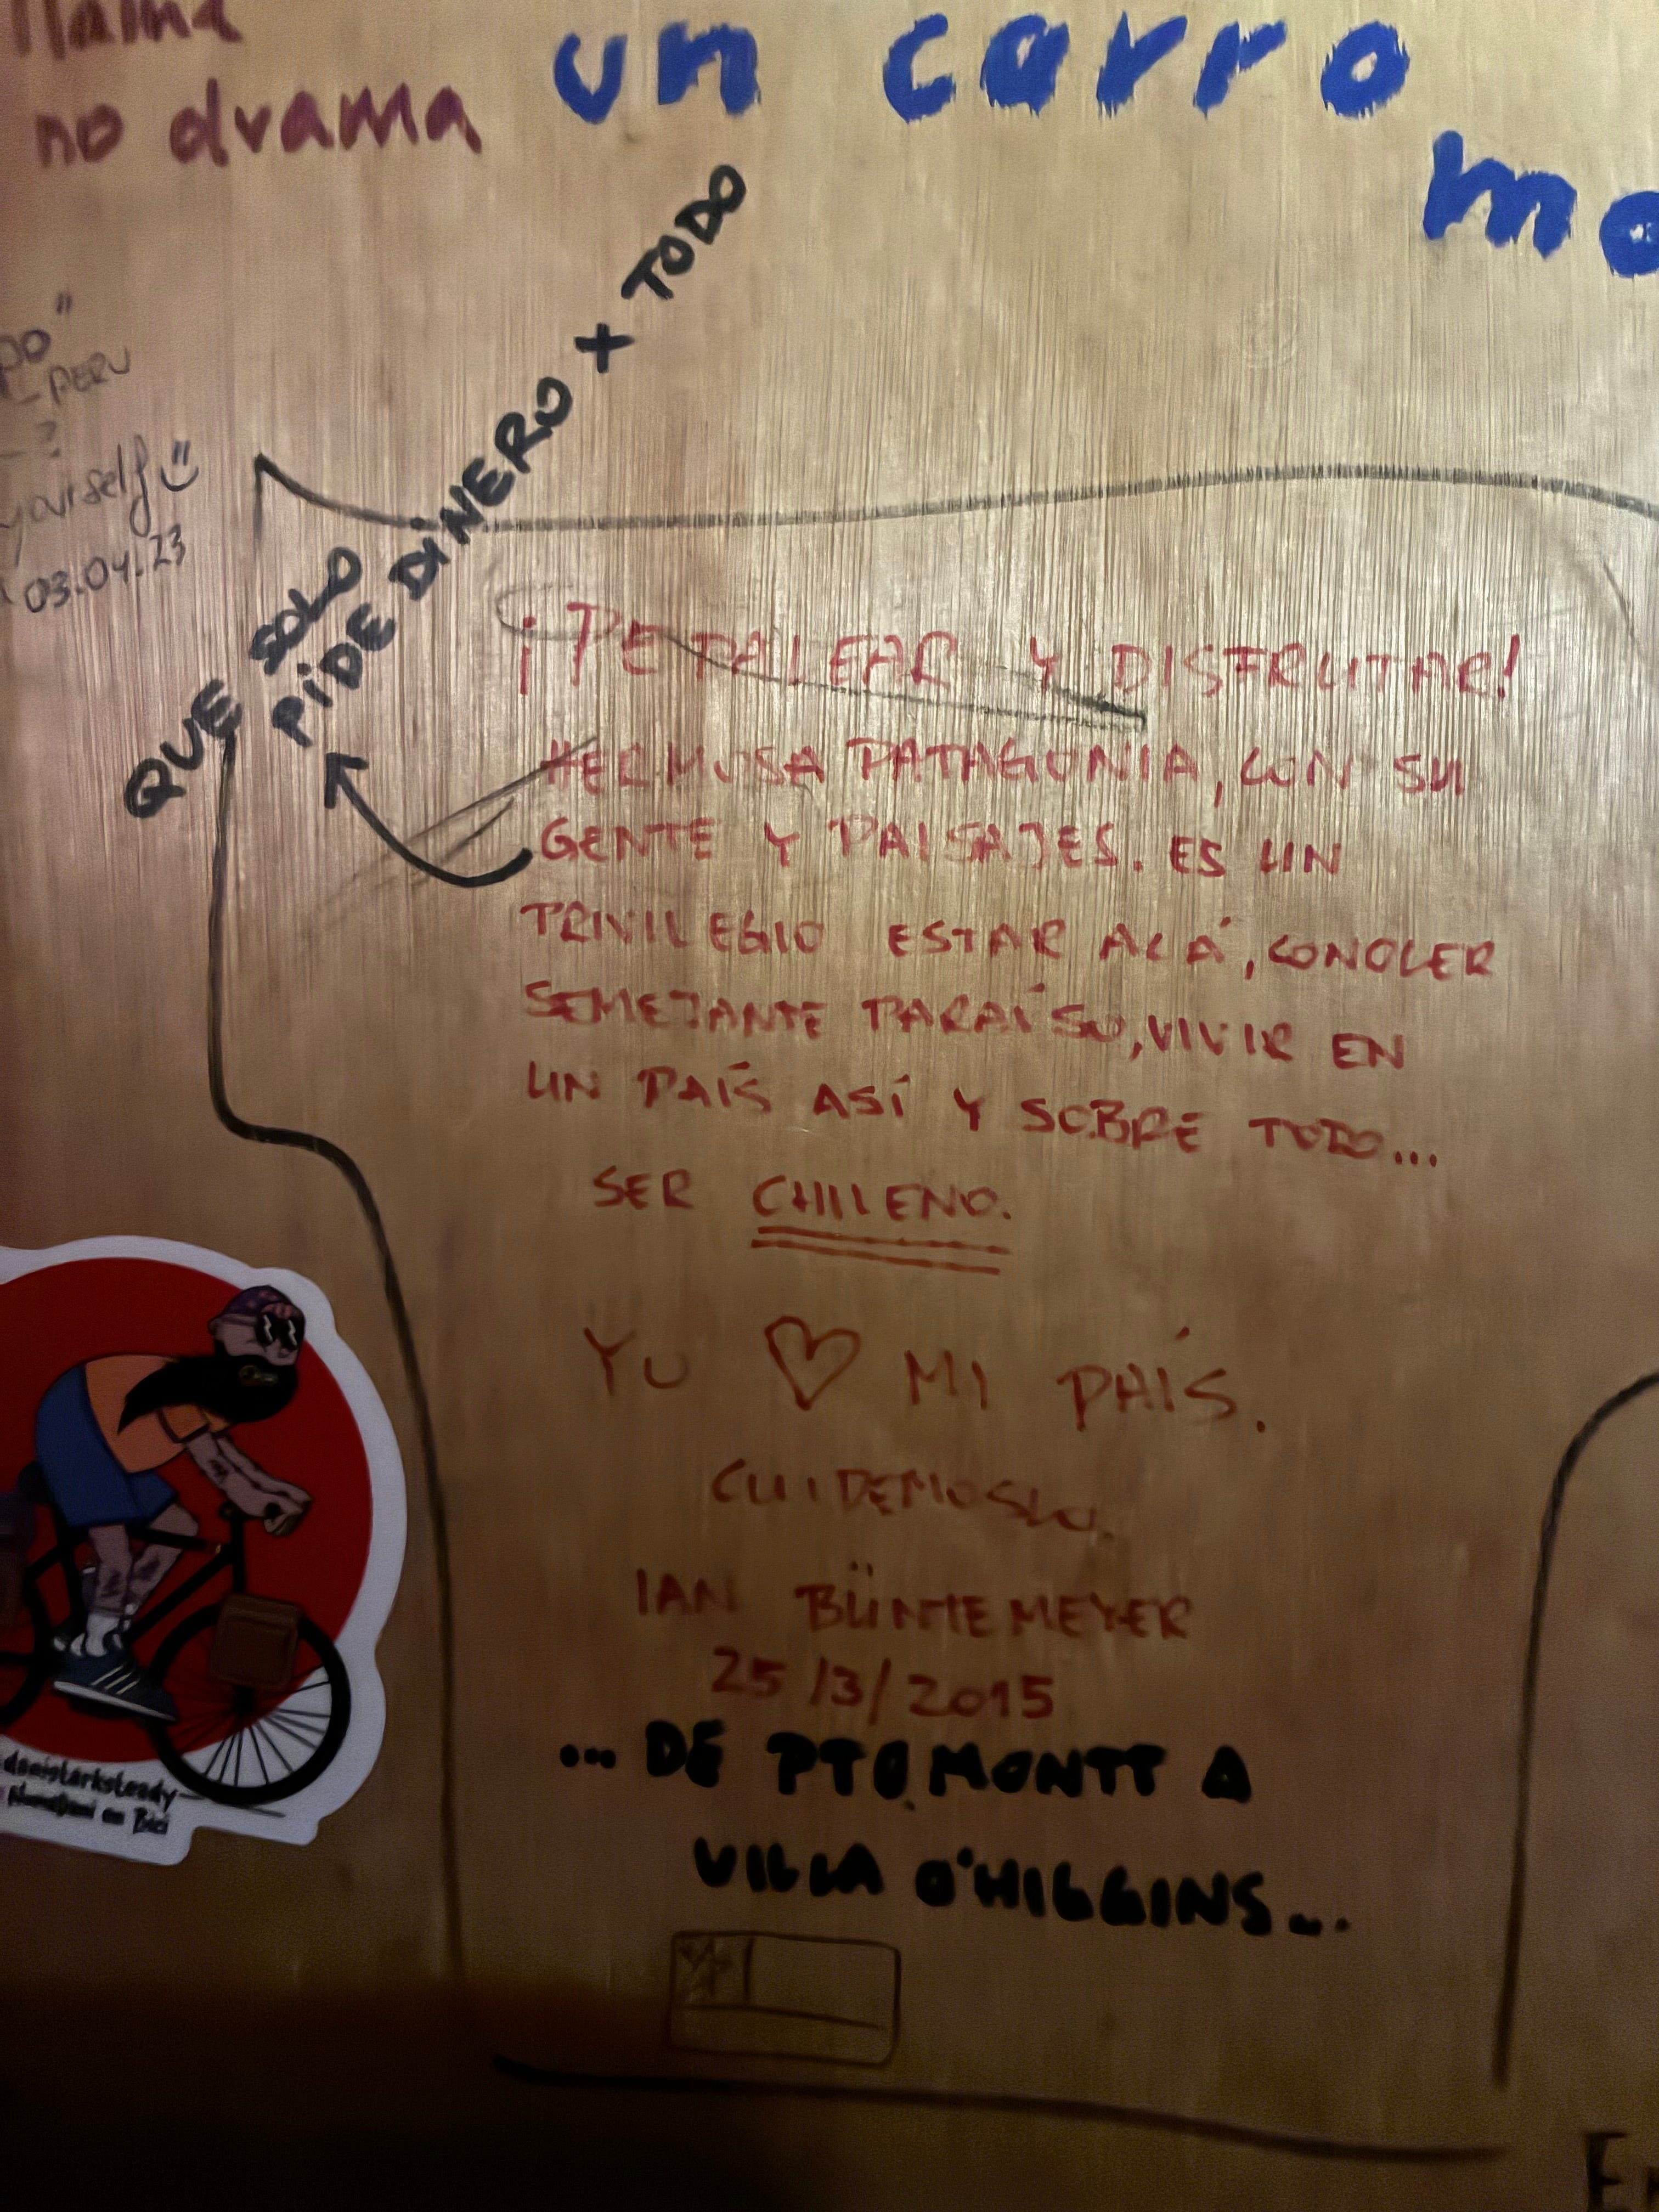 no drama
un carro
QUE SOLO
PIDE DINERO + TODO
PERU
yourself
03.04.23
¡PEDALEAR Y DISFRUTAR!
HERMOSA PATAGONIA, CON SU
GENTE Y PAISAJES. ES UN
PRIVILEGIO ESTAR ACÁ, CONOCER
SEMEJANTE PARAÍSO, VIVIR EN
UN PAÍS ASÍ Y SOBRE TODO...
SER CHILENO.
YO ♡ MI PAÍS.
CUIDEMOSLO.
IAN BÜNTEMEYER
25/3/2015
... DE PTO. MONTT A
VILLA O'HIGGINS...
en Bici